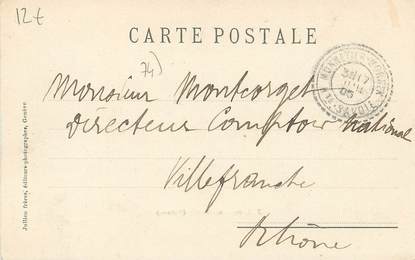 12€
CARTE POSTALE
74)
Monsieur Montcorget
Directeur Comptoir National
Villefranche
Rhône
Jullien frères, éditeurs-photographes, Genève